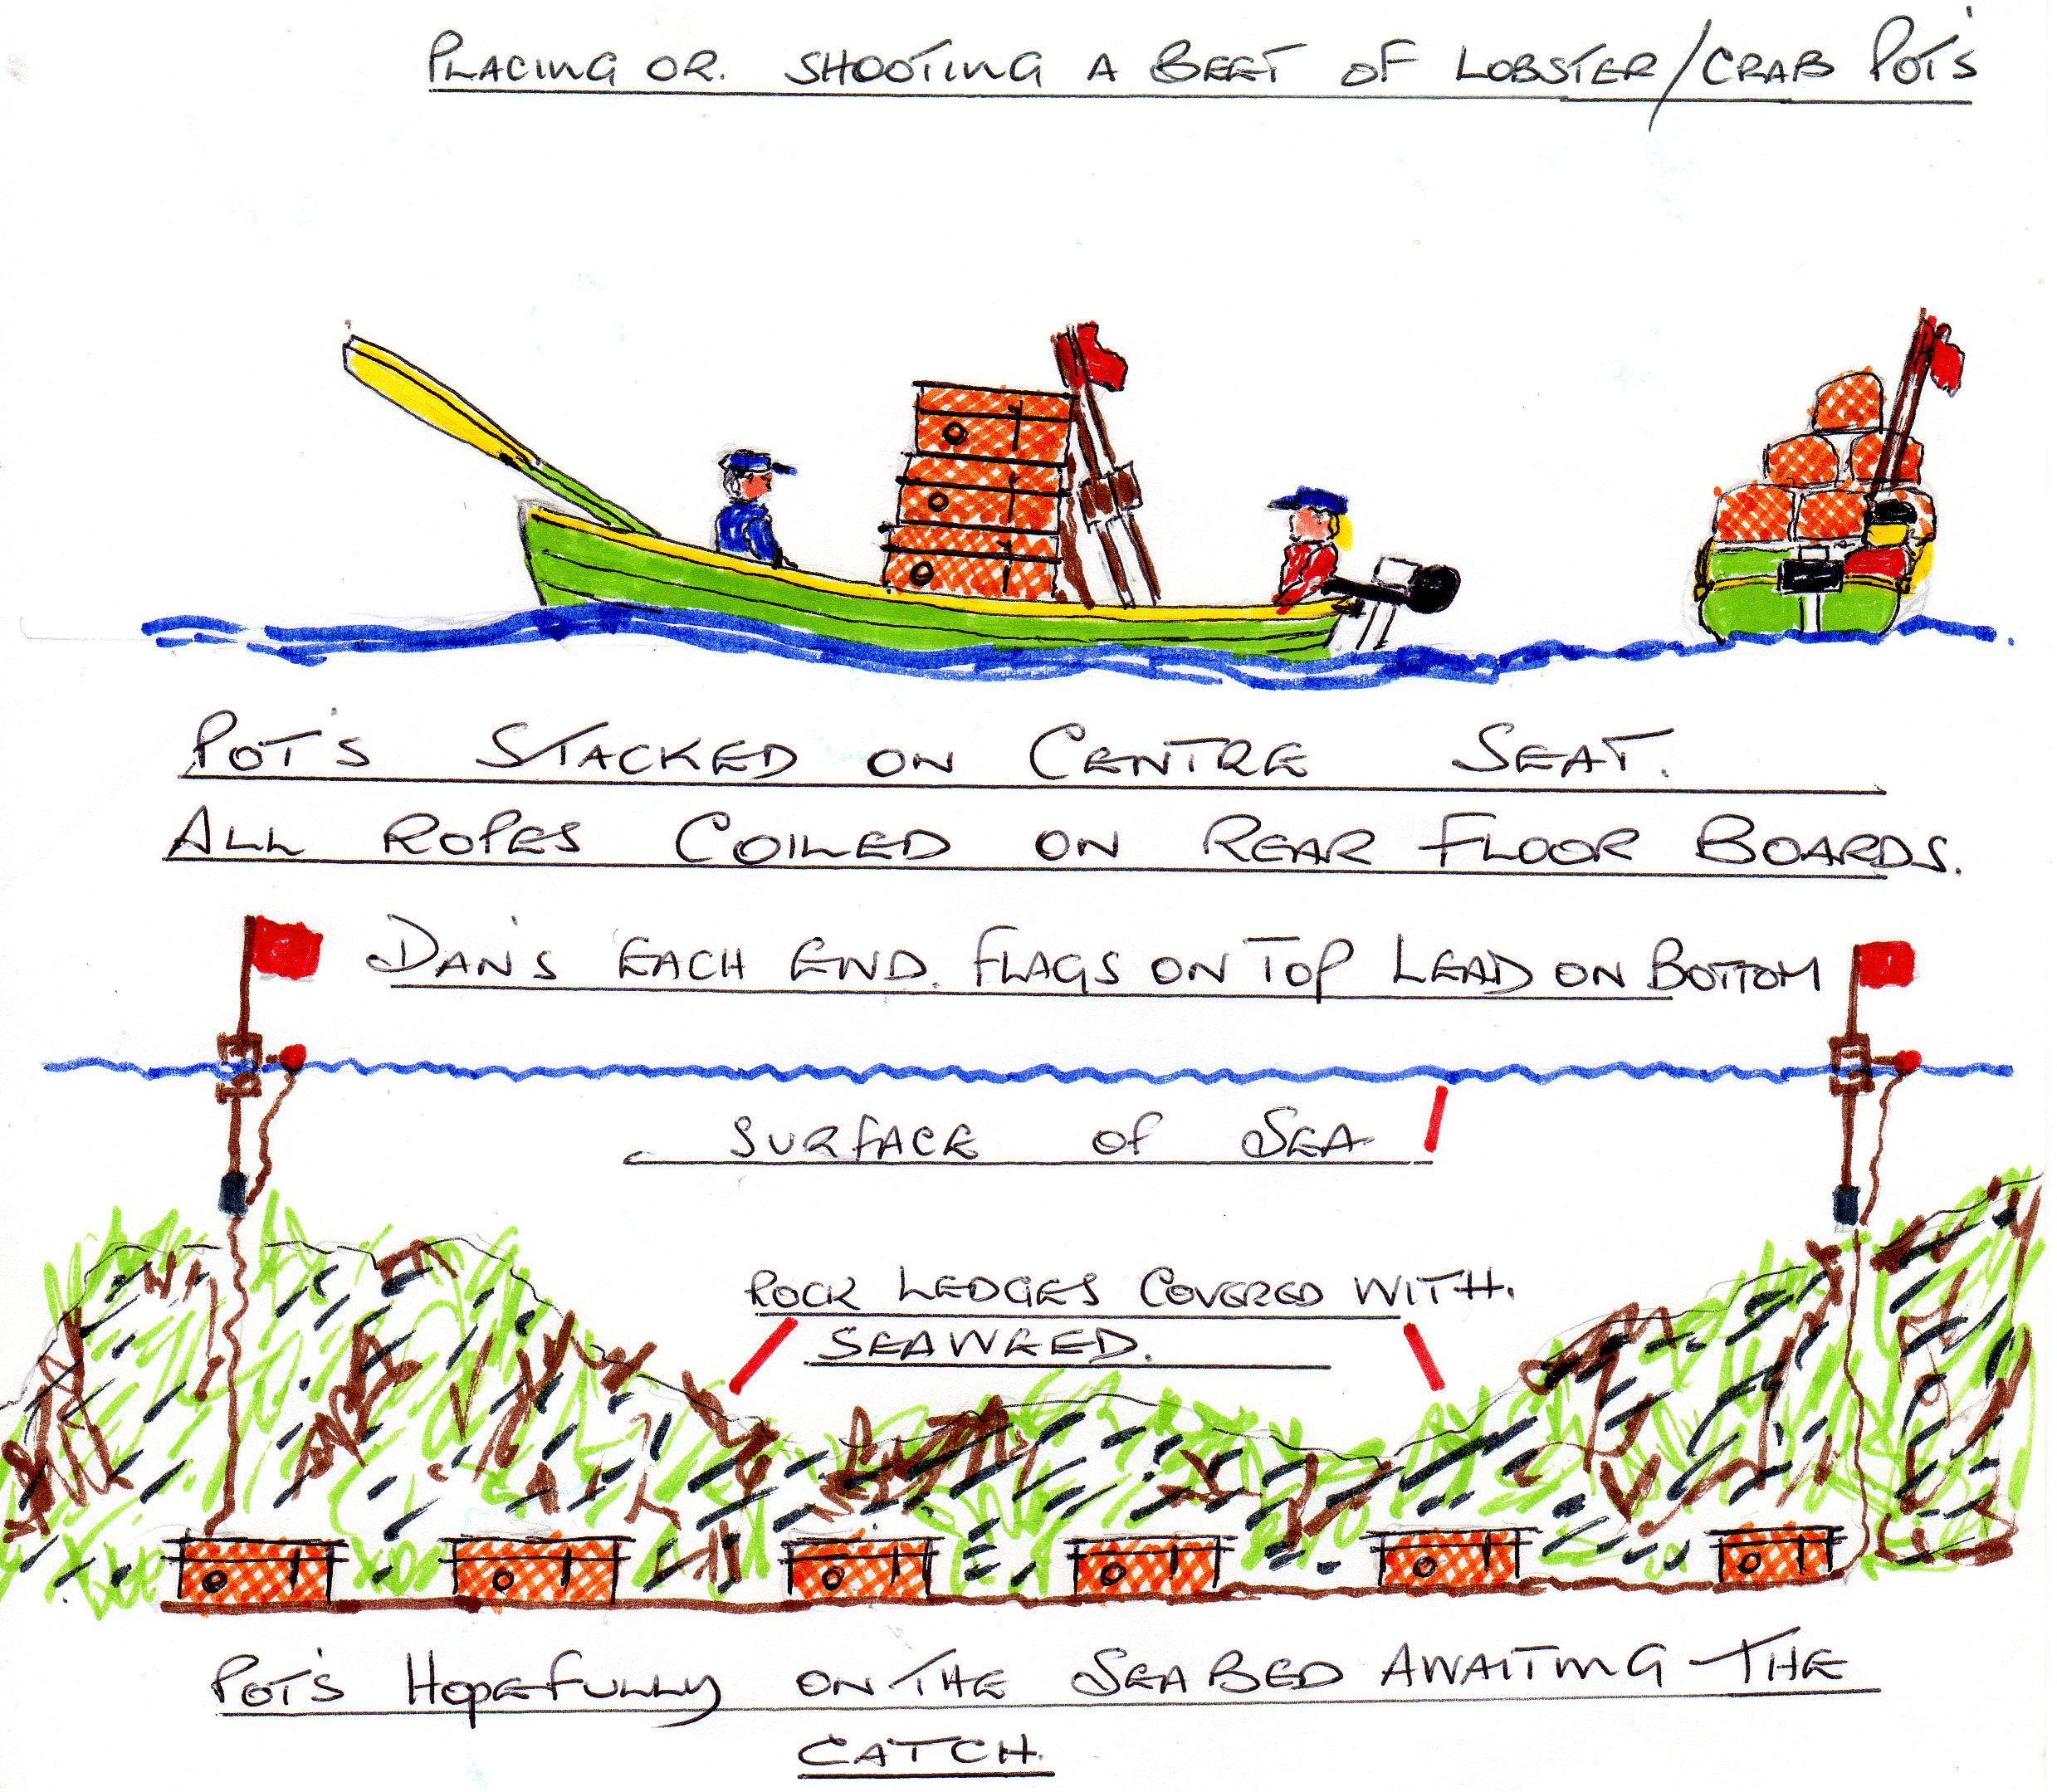 PLACING OR. SHOOTING A BEET OF LOBSTER/CRAB POT'S
POT'S STACKED ON CENTRE SEAT.
ALL ROPES COILED ON REAR FLOOR BOARDS.
DAN'S EACH END. FLAGS ON TOP LEAD ON BOTTOM
SURFACE OF SEA
ROCK LEDGES COVERED WITH.
SEAWEED.
POT'S HOPEFULLY ON THE SEA BED AWAITING THE
CATCH.